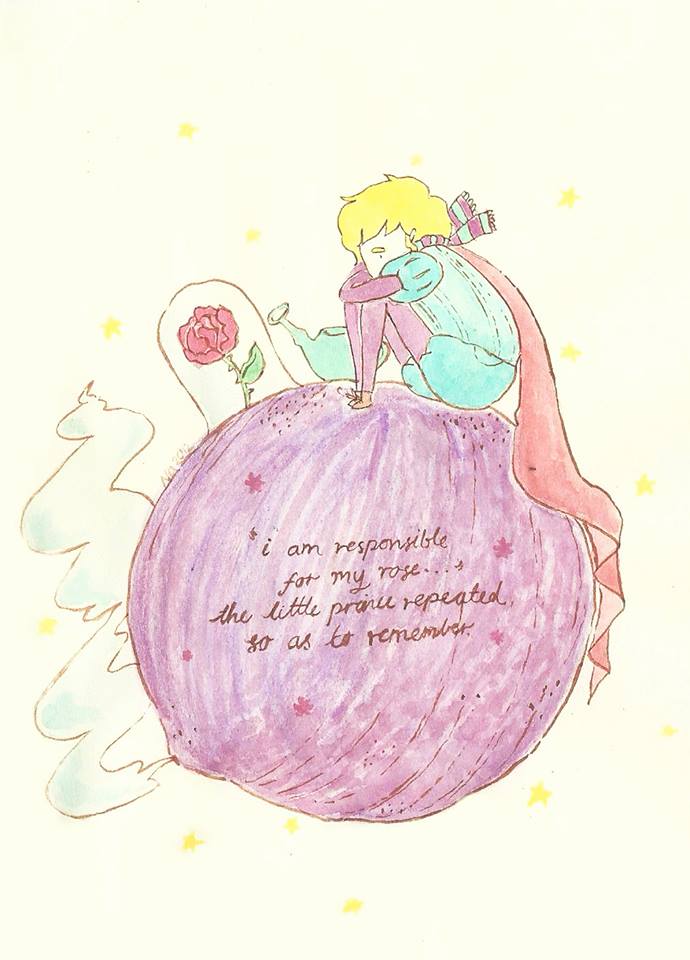 'i am responsible
for my rose....'
the little prince repeated,
so as to remember.